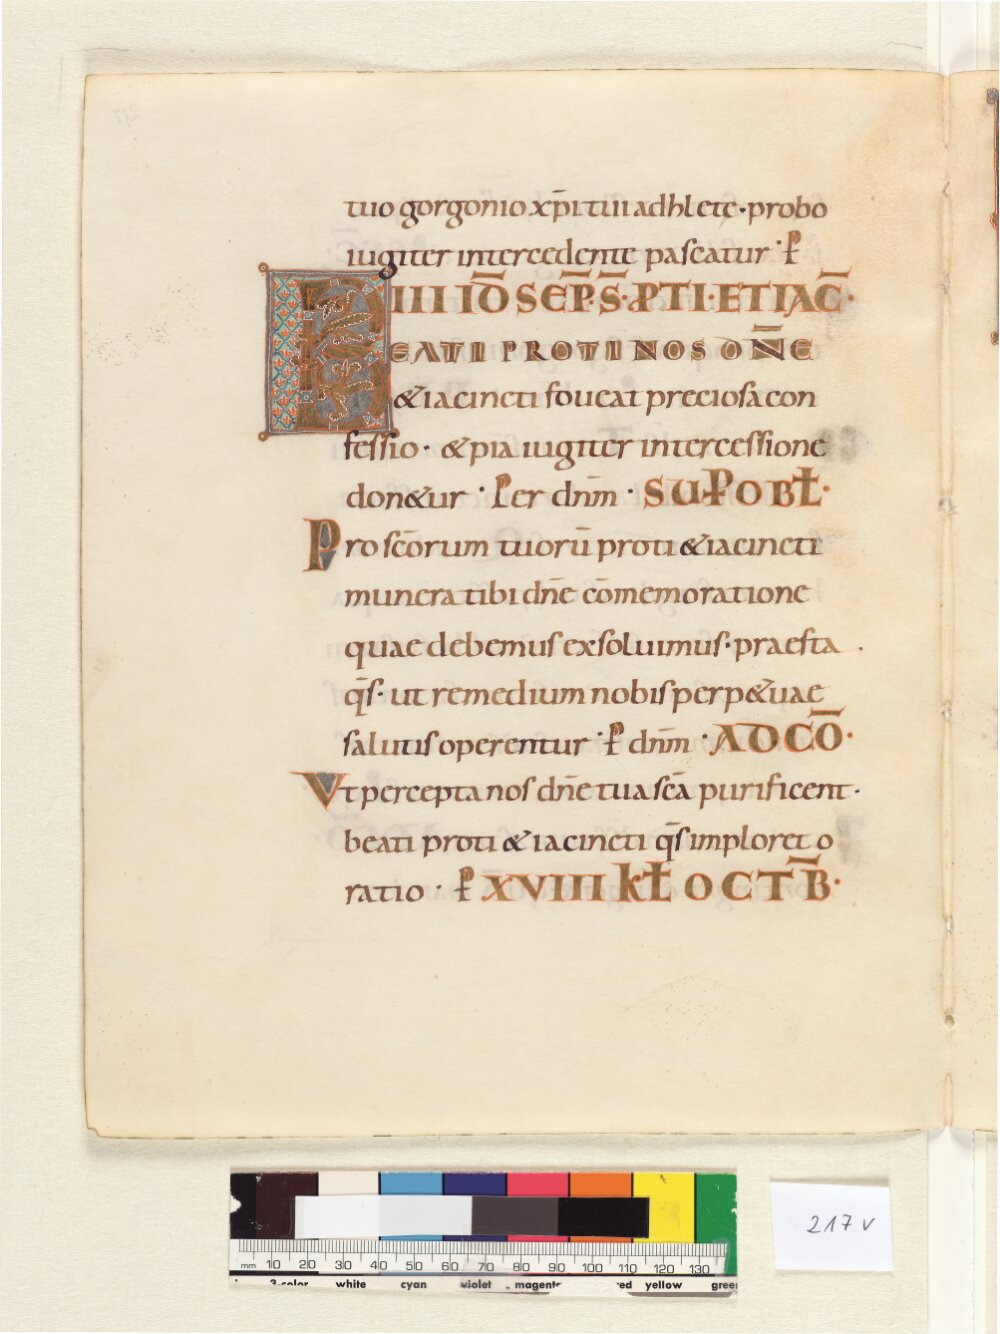 tuo gorgonio xp̄i tui adhlete · probo
iugiter intercedente pascatur · P̄
IIII ID̄ SEP̄. S̄. PTI · ET IAC̄ ·
BEATI PROTI NOS DN̄E
& iacincti foueat preciosa con
fessio · & pia iugiter intercessione
don&ur · Per dnm̄ · SUPOBŁ ·
Pro scōrum tuorū proti & iacincti
munera tibi dn̄e cōmemoratione
quae debemus exsoluimus · praesta .
qs̄ · ut remedium nobis perp&uae
salutis operentur · P̄ dnm̄ · AD CŌ ·
Vt percepta nos dn̄e tua scā purificent ·
beati proti & iacincti qs̄ imploret o
ratio · P̄ XVIII KŁ OCTB̄ ·
217 v
mm 10 20 30 40 50 60 70 80 90 100 110 120 130
3-color white cyan violet magenta red yellow green